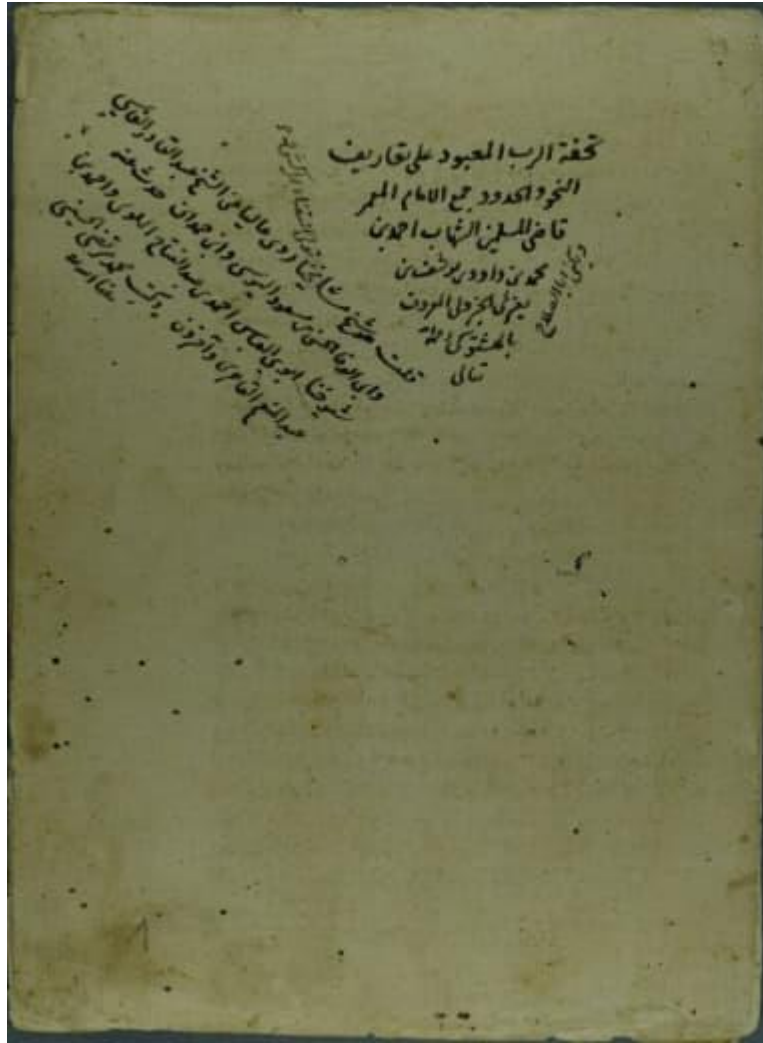 تحفة الرب المعبود على تعاريف
النحو والحدود جمع الامام المعمر
قاضي المسلمين الشهاب احمد بن
محمد بن داود بن يوسف بن
يعزى الجزولى المعروف
بالهشتوكى
تعالى
ويكنى ابا
قلت هو شيخ مشايخنا روى عاليا عن الشيخ عبد القادر الفاسي
وابى الوفا الحسن بن مسعود اليوسي وابن حمدان حدث عنه
شيوخنا ابو العباس احمد بن عبد الفتاح الملوى واحمد بن
عبد المنعم وآخرون وكتب محمد مرتضى الحسيني
عفا الله عنه